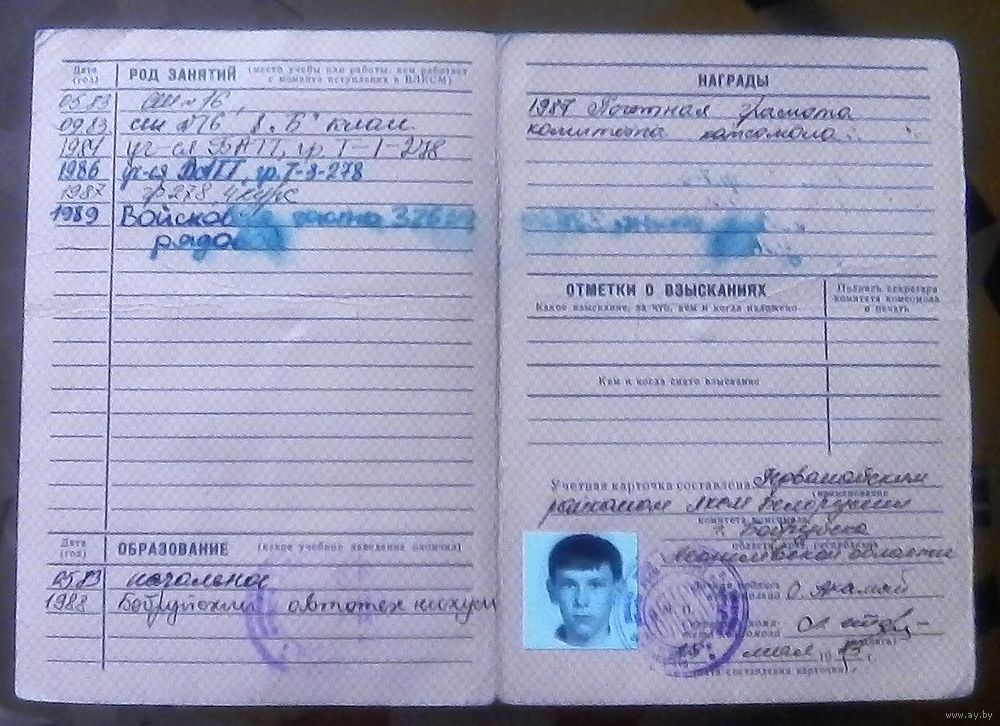 Дата (год)
РОД ЗАНЯТИЙ (место учебы или работы, кем работает с момента вступления в ВЛКСМ)
05.83 СШ №16,
09.83 СШ №16, 8 „Б" класс
1984 уч-ся БАТТ, гр. Т-1-278
1986 уч-ся БАТТ, гр. Т-3-278
1987 гр 278, 4 курс
1989 Войсковая часть
рядовой
Дата (год)
ОБРАЗОВАНИЕ (какое учебное заведение окончил)
05.83 начальное
1988 Бобруйский автотехникум
НАГРАДЫ
1987 Почетная грамота
комитета комсомола.
ОТМЕТКИ О ВЗЫСКАНИЯХ
Какое взыскание, за что, кем и когда наложено
Подпись секретаря комитета комсомола и печать
Кем и когда снято взыскание
Учетная карточка составлена Первомайским
(наименование
райкомом ЛКСМ Белоруссии
комитета комсомола,
г. Бобруйска
Могилевской области
М. П.
мая 1983 г.
дата составления карточки)
www.ay.by